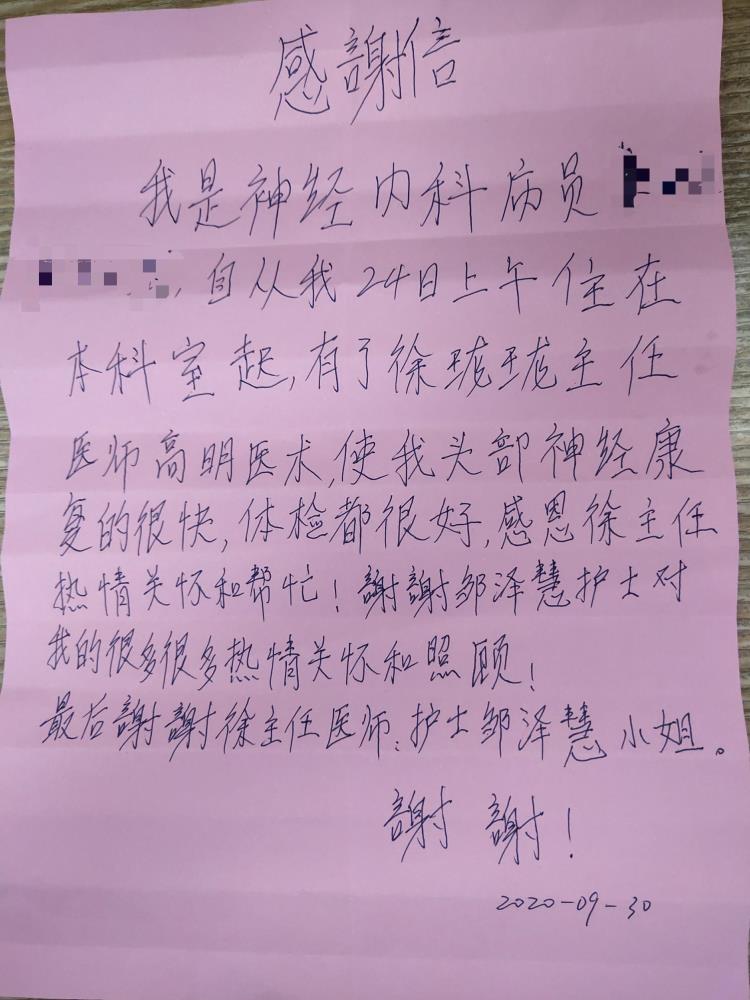 感謝信
我是神经内科病员
，自从我24日上午住在
本科室起，有了徐珑珑主任
医师高明医术，使我头部神经康
复的很快，体检都很好，感恩徐主任
热情关怀和帮忙！謝謝邹泽慧护士对
我的很多很多热情关怀和照顾！
最后謝謝徐主任医师：护士邹泽慧小姐。
謝謝！
2020-09-30